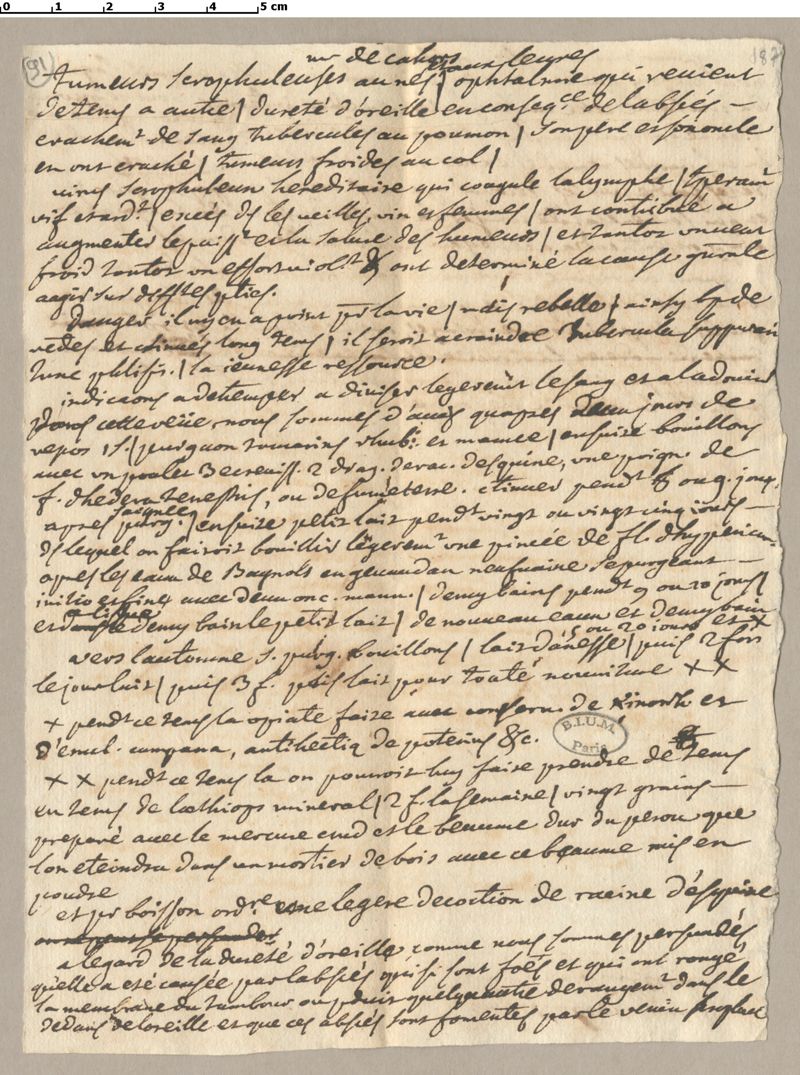 0 1 2 3 4 5 cm
91
187
mr de cahors
aux levres
tumeurs scrophuleuses au nes | ophtalmie qui revient
de tems a autre | dureté d'oreille en conseq.ce de labsces
crachemt de sang tubercules au poumon | son pere et son oncle
en ont craché | tumeurs froides au col |
virus scrophuleux hereditaire qui coagule la lymphe | temperamt
vif et ardt | excés ds les veilles, vin et femmes | ont contribué a
augmenter et la salure des humeurs | et tantot un
froid tantot un effort violt ont determiné la cause gnrale
a agir sur difftes pties.
danger il ny en a point pr la vie | mais rebelle | ainsy bp de
remedes et long tems | il seroit a craindre tubercule
une ptisis. | la jeunesse ressource.
indicaons a detremper a diviser legeremt le sang et a ladoucir
dans cette veüe nous sommes d'avis quapres deux jours de
repos 1 s. | purg on tamarins rhub. et manne | ensuite bouillons
avec un poulet 3 ecreviss. 2 drag. de rac. desquine, une poign. de
f. dhedera terrestris, ou de fumeterre. ctinuer pendt 8 ou 9 jours
saignée
apres purg. | ensuite petit lait pendt vingt ou vingt cinq jours
ds lequel on fairoit bouillir legeremt une pincée de fl. dhypericum
apres les eaux de Bagnols en gevaudan neufvaine se purgeant
initio et fine avec deux onc. mann. | demy bains pendt 9 ou 10 jours |
et demy bain le petit lait | de nouveau eaux et demy bain
vers lautomne s. purg. bouillons | lait danesse | ou 20 jours et x puis 2 fois
le jour lait | puis 3 f. puis lait pour toute nouriture x x
x pendt ce tems la opiate faite avec conserv. de kinorh et
d'enul. campana, antihectiq de poterius &c.
x x pendt ce tems la on pouroit luy faire prendre de tems
en tems de læthiops mineral | 2 f. la semaine | vingt grains
preparé avec le mercure crud et le beaume dur du perou que
lon eteindra dans un mortier de bois avec ce beaume mis en
poudre
et pr boisson ordre une legere decoction de racine d'esquine
a legard de la dureté d'oreille comme nous sommes persuadés
quelle a eté causée par labsces qui si sont foés et qui ont rongé
la membrane du tambour ou pduit quelque autre derangemt dans le
dedans de loreille et que ces absces sont fomentés par le venin
B.I.U.M.
Paris